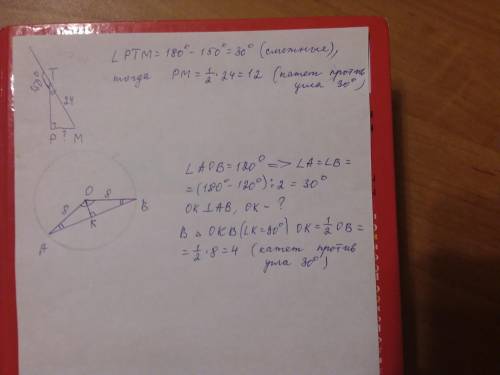 ∠PTM = 180° - 150° = 30° (смежные),
тогда PM = 1/2 · 24 = 12 (катет против
угла 30°)
150°
T
24
P
?
M
∠AOB = 120° => ∠A = ∠B =
= (180° - 120°) : 2 = 30°
OK ⊥ AB, OK - ?
В △ OKB (∠K = 90°) OK = 1/2 OB =
= 1/2 · 8 = 4 (катет против
угла 30°)
O
8
8
B
K
A